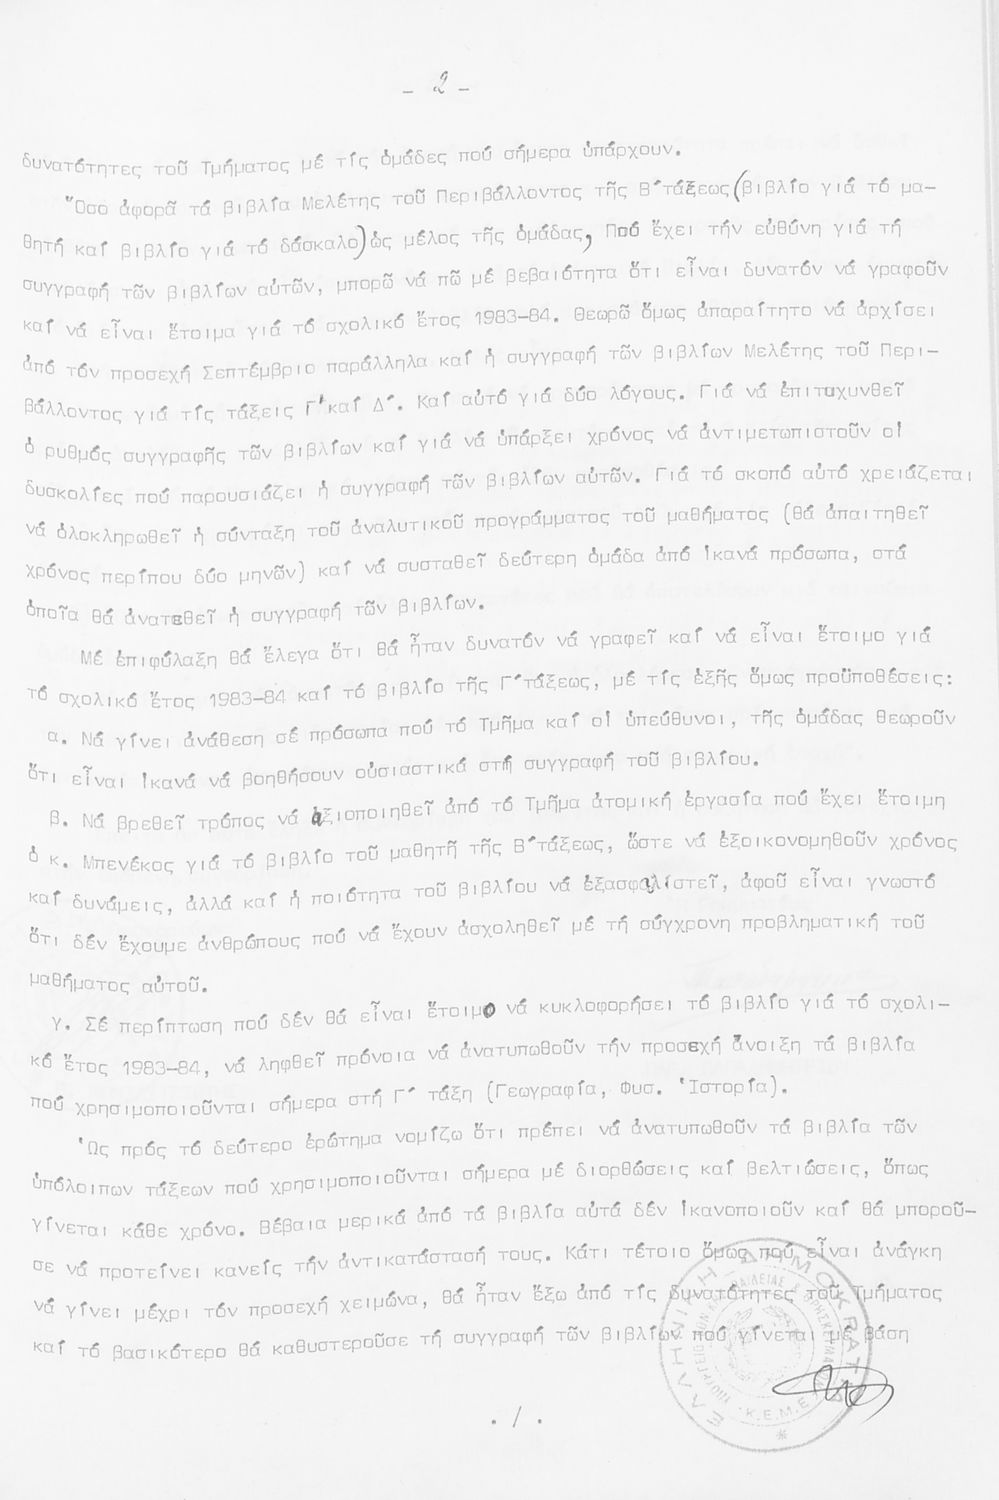 - 2 -
δυνατότητες τοῦ Τμήματος μέ τίς ὁμάδες πού σήμερα ὑπάρχουν.
Ὅσο ἀφορᾶ τά βιβλία Μελέτης τοῦ Περιβάλλοντος τῆς Β΄τάξεως(βιβλίο γιά τό μα-
θητή καί βιβλίο γιά τό δάσκαλο)ὡς μέλος τῆς ὁμάδας, Πού ἔχει τήν εὐθύνη γιά τή
συγγραφή τῶν βιβλίων αὐτῶν, μπορῶ νά πῶ μέ βεβαιότητα ὅτι εἶναι δυνατόν νά γραφοῦν
καί νά εἶναι ἕτοιμα γιά τό σχολικό ἔτος 1983-84. Θεωρῶ ὅμως ἀπαραίτητο νά ἀρχίσει
ἀπό τόν προσεχή Σεπτέμβριο παράλληλα καί ἡ συγγραφή τῶν βιβλίων Μελέτης τοῦ Περι-
βάλλοντος γιά τίς τάξεις Γ΄καί Δ΄. Καί αὐτό γιά δύο λόγους. Γιά νά ἐπιταχυνθεῖ
ὁ ρυθμός συγγραφῆς τῶν βιβλίων καί γιά νά ὑπάρξει χρόνος νά ἀντιμετωπιστοῦν οἱ
δυσκολίες πού παρουσιάζει ἡ συγγραφή τῶν βιβλίων αὐτῶν. Γιά τό σκοπό αὐτό χρειάζεται
νά ὁλοκληρωθεῖ ἡ σύνταξη τοῦ ἀναλυτικοῦ προγράμματος τοῦ μαθήματος (θά ἀπαιτηθεῖ
χρόνος περίπου δύο μηνῶν) καί νά συσταθεῖ δεύτερη ὁμάδα ἀπό ἱκανά πρόσωπα, στά
ὁποῖα θά ἀνατεθεῖ ἡ συγγραφή τῶν βιβλίων.
Μέ ἐπιφύλαξη θά ἔλεγα ὅτι θά ἦταν δυνατόν νά γραφεῖ καί νά εἶναι ἕτοιμο γιά
τό σχολικό ἔτος 1983-84 καί τό βιβλίο τῆς Γ΄τάξεως, μέ τίς ἑξῆς ὅμως προϋποθέσεις:
α. Νά γίνει ἀνάθεση σέ πρόσωπα πού τό Τμῆμα καί οἱ ὑπεύθυνοι, τῆς ὁμάδας θεωροῦν
ὅτι εἶναι ἱκανά νά βοηθήσουν οὐσιαστικά στή συγγραφή τοῦ βιβλίου.
β. Νά βρεθεῖ τρόπος νά ἀξιοποιηθεῖ ἀπό τό Τμῆμα ἀτομική ἐργασία πού ἔχει ἕτοιμη
ὁ κ. Μπενέκος γιά τό βιβλίο τοῦ μαθητῆ τῆς Β΄τάξεως, ὥστε νά ἐξοικονομηθοῦν χρόνος
καί δυνάμεις, ἀλλά καί ἡ ποιότητα τοῦ βιβλίου νά ἐξασφαλιστεῖ, ἀφοῦ εἶναι γνωστό
ὅτι δέν ἔχουμε ἀνθρώπους πού νά ἔχουν ἀσχοληθεῖ μέ τή σύγχρονη προβληματική τοῦ
μαθήματος αὐτοῦ.
γ. Σέ περίπτωση πού δέν θά εἶναι ἕτοιμο νά κυκλοφορήσει τό βιβλίο γιά τό σχολι-
κό ἔτος 1983-84, νά ληφθεῖ πρόνοια νά ἀνατυπωθοῦν τήν προσεχή ἄνοιξη τά βιβλία
πού χρησιμοποιοῦνται σήμερα στή Γ΄ τάξη (Γεωγραφία, Φυσ. Ἱστορία).
Ὡς πρός τό δεύτερο ἐρώτημα νομίζω ὅτι πρέπει νά ἀνατυπωθοῦν τά βιβλία τῶν
ὑπόλοιπων τάξεων πού χρησιμοποιοῦνται σήμερα μέ διορθώσεις καί βελτιώσεις, ὅπως
γίνεται κάθε χρόνο. Βέβαια μερικά ἀπό τά βιβλία αὐτά δέν ἱκανοποιοῦν καί θά μποροῦ-
σε νά προτείνει κανείς τήν ἀντικατάστασή τους. Κάτι τέτοιο ὅμως πού εἶναι ἀνάγκη
νά γίνει μέχρι τόν προσεχή χειμώνα, θά ἦταν ἔξω ἀπό τίς δυνατότητες τοῦ Τμήματος
καί τό βασικότερο θά καθυστεροῦσε τή συγγραφή τῶν βιβλίων πού γίνεται μέ βάση
ΕΛΛΗΝΙΚΗ ΔΗΜΟΚΡΑΤΙΑ
Κ.Ε.Μ.Ε.
./.